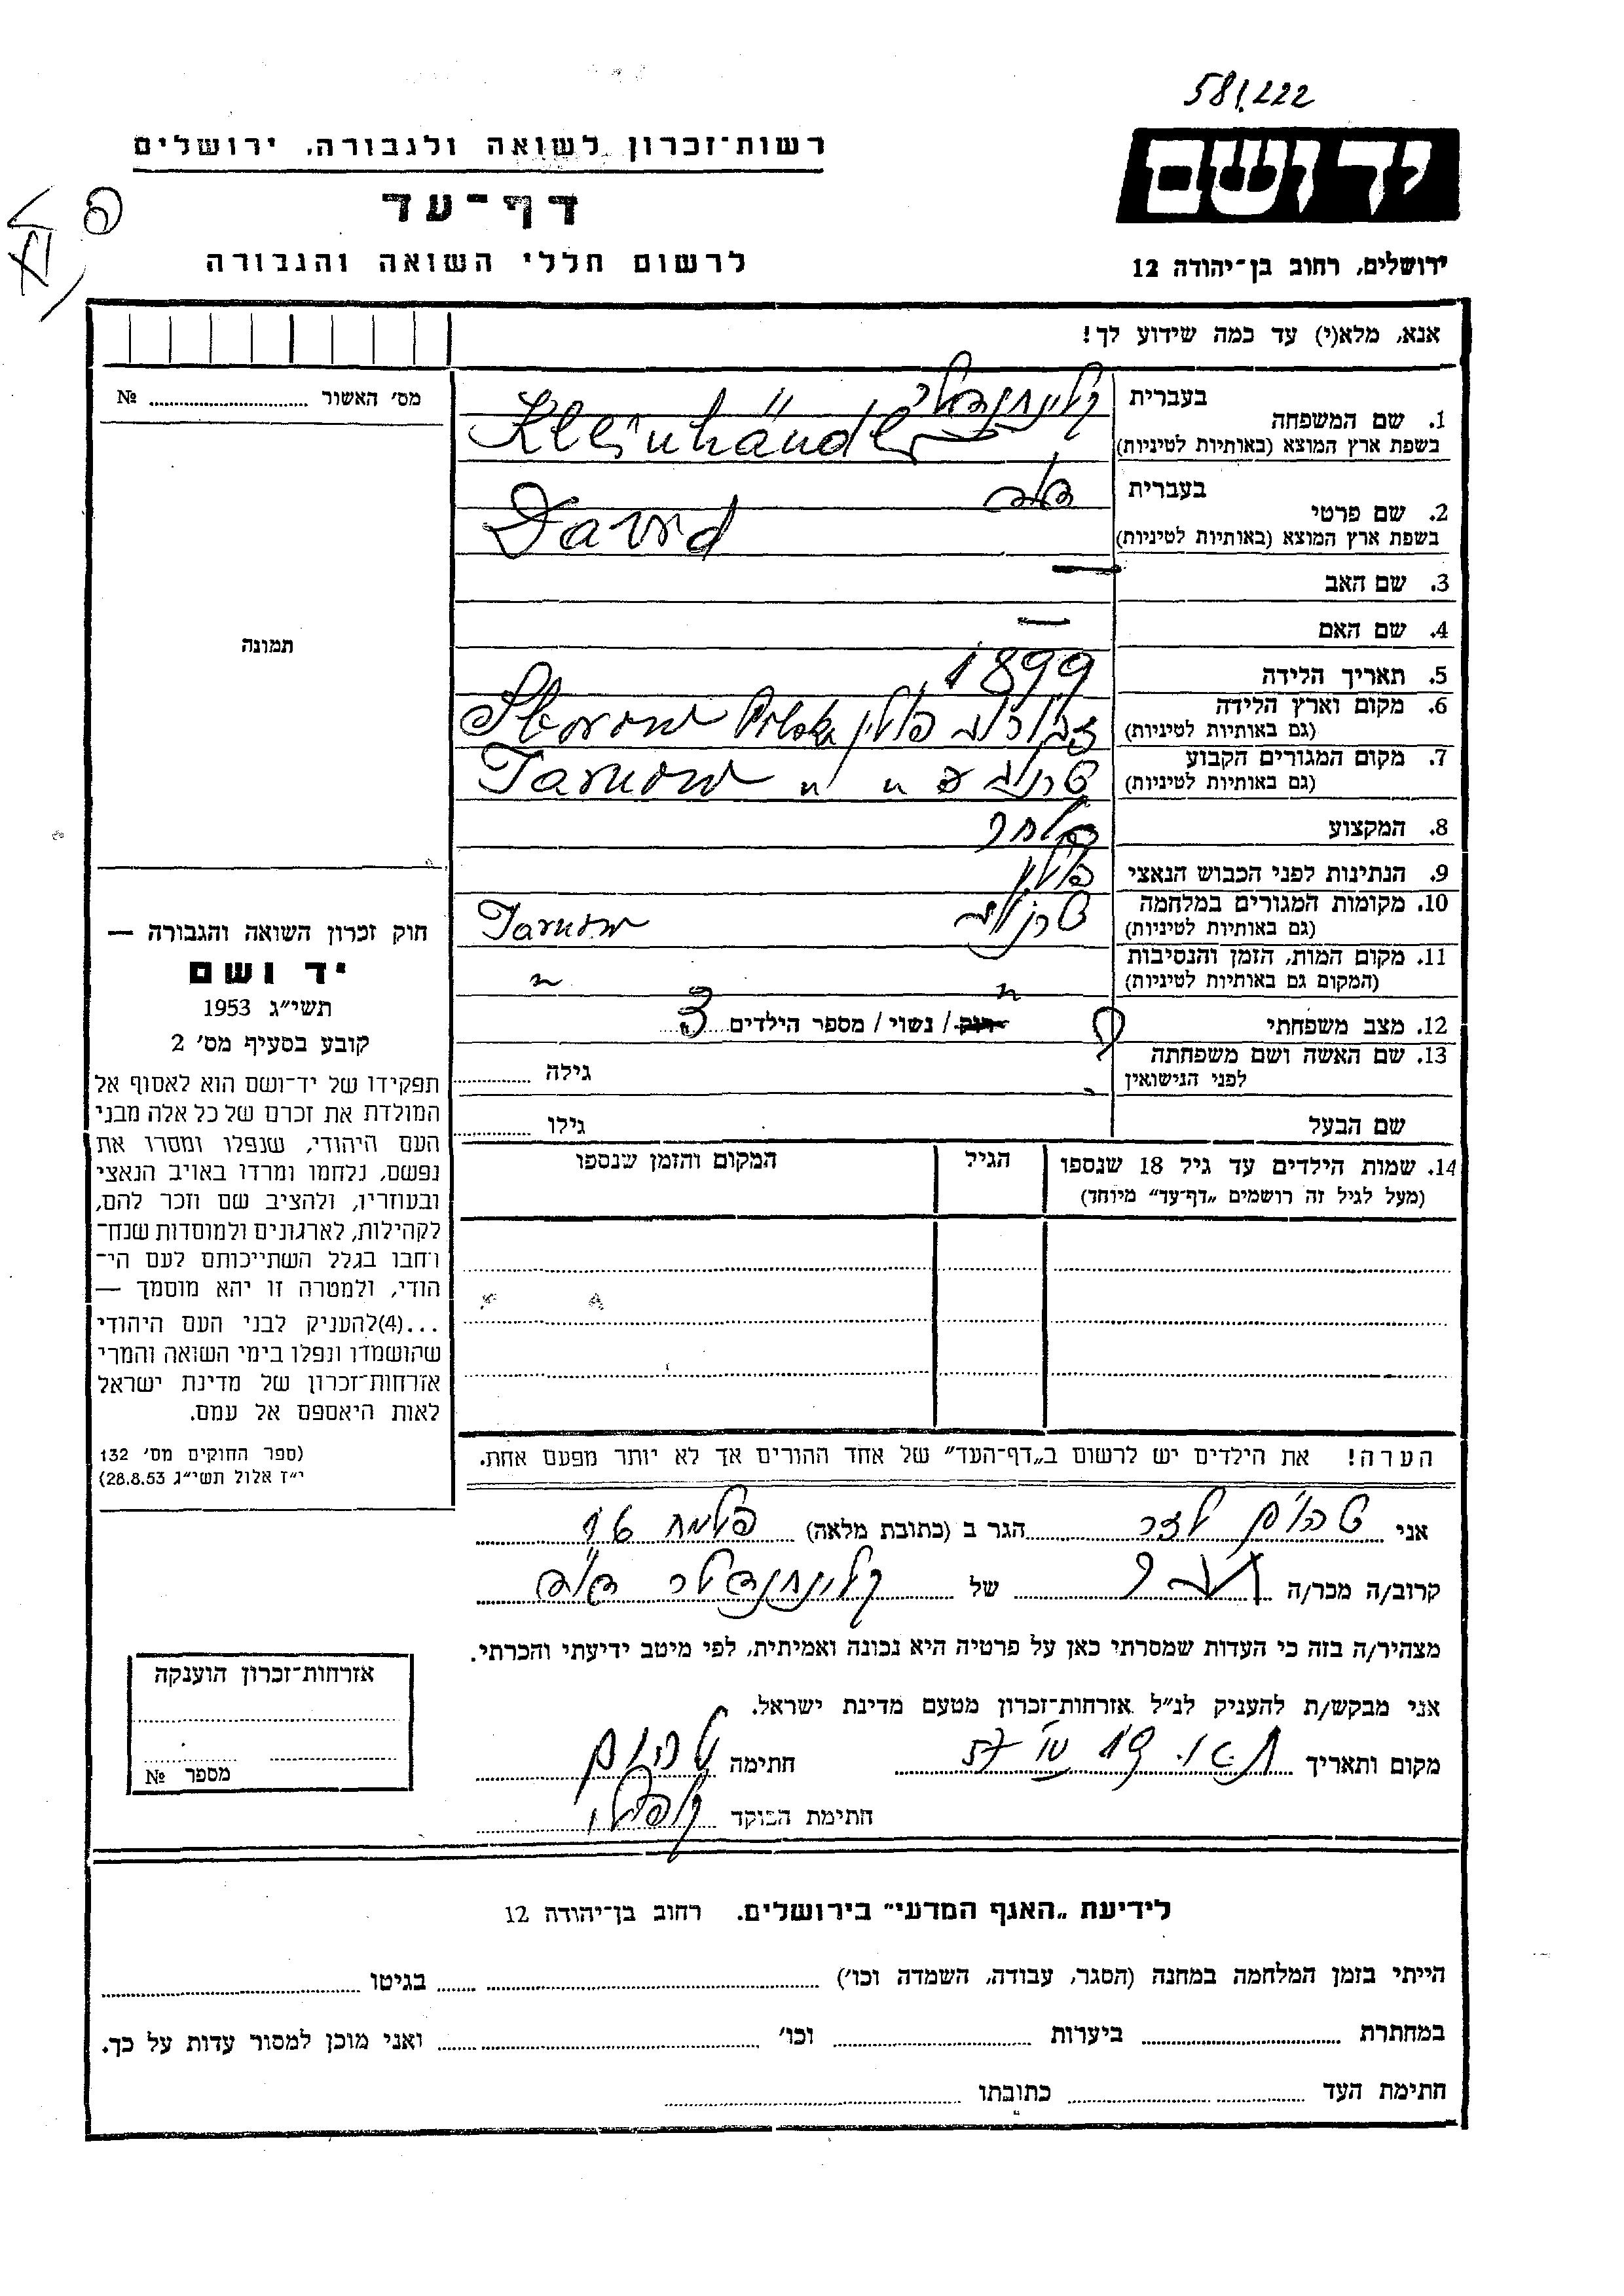 581.222
רשות־זכרון לשואה ולגבורה. ירושלים
דף־עד
לרשום חללי השואה והגבורה
יד ושם
ירושלים, רחוב בן־יהודה 12
אנא, מלא(י) עד כמה שידוע לך!
מס׳ האשור № 
תמונה
1. שם המשפחה בעברית קליינהנדלר
בשפת ארץ המוצא (באותיות לטיניות) Kleinhändler
2. שם פרטי בעברית דוד
בשפת ארץ המוצא (באותיות לטיניות) David
3. שם האב —
4. שם האם —
5. תאריך הלידה 1899
6. מקום וארץ הלידה פולין Polska
(גם באותיות לטיניות)
7. מקום המגורים הקבוע טרנוב " " Tarnow
(גם באותיות לטיניות)
8. המקצוע סוחר
9. הנתינות לפני הכבוש הנאצי פולין
10. מקומות המגורים במלחמה טרנוב Tarnow
(גם באותיות לטיניות)
11. מקום המות, הזמן והנסיבות " "
(המקום גם באותיות לטיניות)
12. מצב משפחתי רוק/ נשוי/ מספר הילדים 3
13. שם האשה ושם משפחתה גילה
לפני הנישואין
שם הבעל גילו
14. שמות הילדים עד גיל 18 שנספו הגיל המקום והזמן שנספו
(מעל לגיל זה רושמים „דף־עד” מיוחד)
הערה! את הילדים יש לרשום ב„דף־העד” של אחד ההורים אך לא יותר מפעם אחת.
חוק זכרון השואה והגבורה —
יד ושם
תשי״ג 1953
קובע בסעיף מס׳ 2
תפקידו של יד־ושם הוא לאסוף אל
המולדת את זכרם של כל אלה מבני
העם היהודי, שנפלו ומסרו את
נפשם, נלחמו ומרדו באויב הנאצי
ובעוזריו, ולהציב שם וזכר להם,
לקהילות, לארגונים ולמוסדות שנח־
רחבו בגלל השתייכותם לעם הי־
הודי, ולמטרה זו יהא מוסמך —
...(4)להעניק לבני העם היהודי
שהושמדו ונפלו בימי השואה והמרי
אזרחות־זכרון של מדינת ישראל
לאות היאספם אל עמם.
(ספר החוקים מס׳ 132
י״ז אלול תשי״ג 28.8.53)
אני הגר ב (כתובת מלאה)
קרוב/ה מכר/ה חבר של קליינהנדלר דוד
מצהיר/ה בזה כי העדות שמסרתי כאן על פרטיה היא נכונה ואמיתית, לפי מיטב ידיעתי והכרתי.
אני מבקש/ת להעניק לנ״ל אזרחות־זכרון מטעם מדינת ישראל.
מקום ותאריך חתימה
חתימת הפוקד
אזרחות־זכרון הוענקה
מספר №
לידיעת „האגף המדעי” בירושלים. רחוב בן־יהודה 12
הייתי בזמן המלחמה במחנה (הסגר, עבודה, השמדה וכו׳) בגיטו
במחתרת ביערות וכו׳ ואני מוכן למסור עדות על כך.
חתימת העד כתובתו